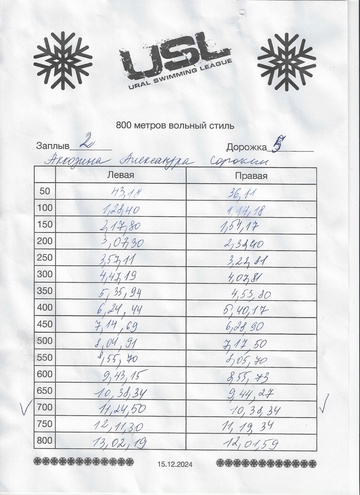 USL
URAL SWIMMING LEAGUE
800 метров вольный стиль
Заплыв 2 Дорожка 5
Александра Сорокин
Левая Правая
50 43,18 36,11
100 1,29,40 1,14,18
150 2,17,80 1,54,17
200 3,07,30 2,34,40
250 3,57,11 3,22,81
300 4,47,19 4,07,81
350 5,35,94 4,53,80
400 6,24,44 5,40,17
450 7,14,69 6,28,90
500 8,04,91 7,17,50
550 8,55,70 8,05,70
600 9,43,15 8,55,73
650 10,34,34 9,44,27
700 11,24,50 10,34,34
750 12,11,30 11,19,34
800 13,02,19 12,01,59
15.12.2024